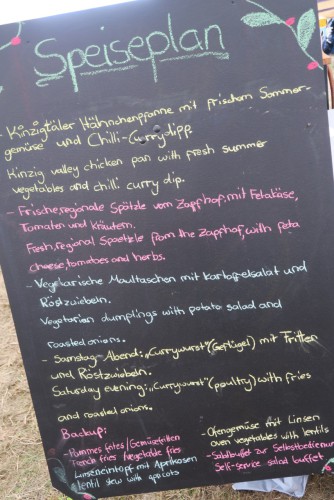 Speiseplan
- Kinzigtäler Hähnchenpfanne mit frischem Sommer-
gemüse und Chilli-Currydipp.
Kinzig valley chicken pan with fresh summer
vegetables and chilli curry dip.
- Frische, regionale Spätzle vom Zapfhof, mit Fetakäse,
Tomaten und Kräutern.
Fresh, regional Spaetzle from the Zapfhof, with feta
cheese, tomatoes and herbs.
- Vegetarische Maultaschen mit Kartoffelsalat und
Röstzwiebeln.
Vegetarian dumplings with potato salad and
roasted onions.
- Samstag-Abend: „Currywurst“ (Geflügel) mit Fritten
und Röstzwiebeln.
Saturday evening: „Currywurst“ (poultry) with fries
and roasted onions.
Backup:
- Pommes frites / Gemüsefritten
French fries / Vegetable fries
Linseneintopf mit Aprikosen
lentil stew with apricots
- Ofengemüse mit Linsen
oven vegetables with lentils
- Salatbuffet zur Selbstbedienung
Self-service salad buffet